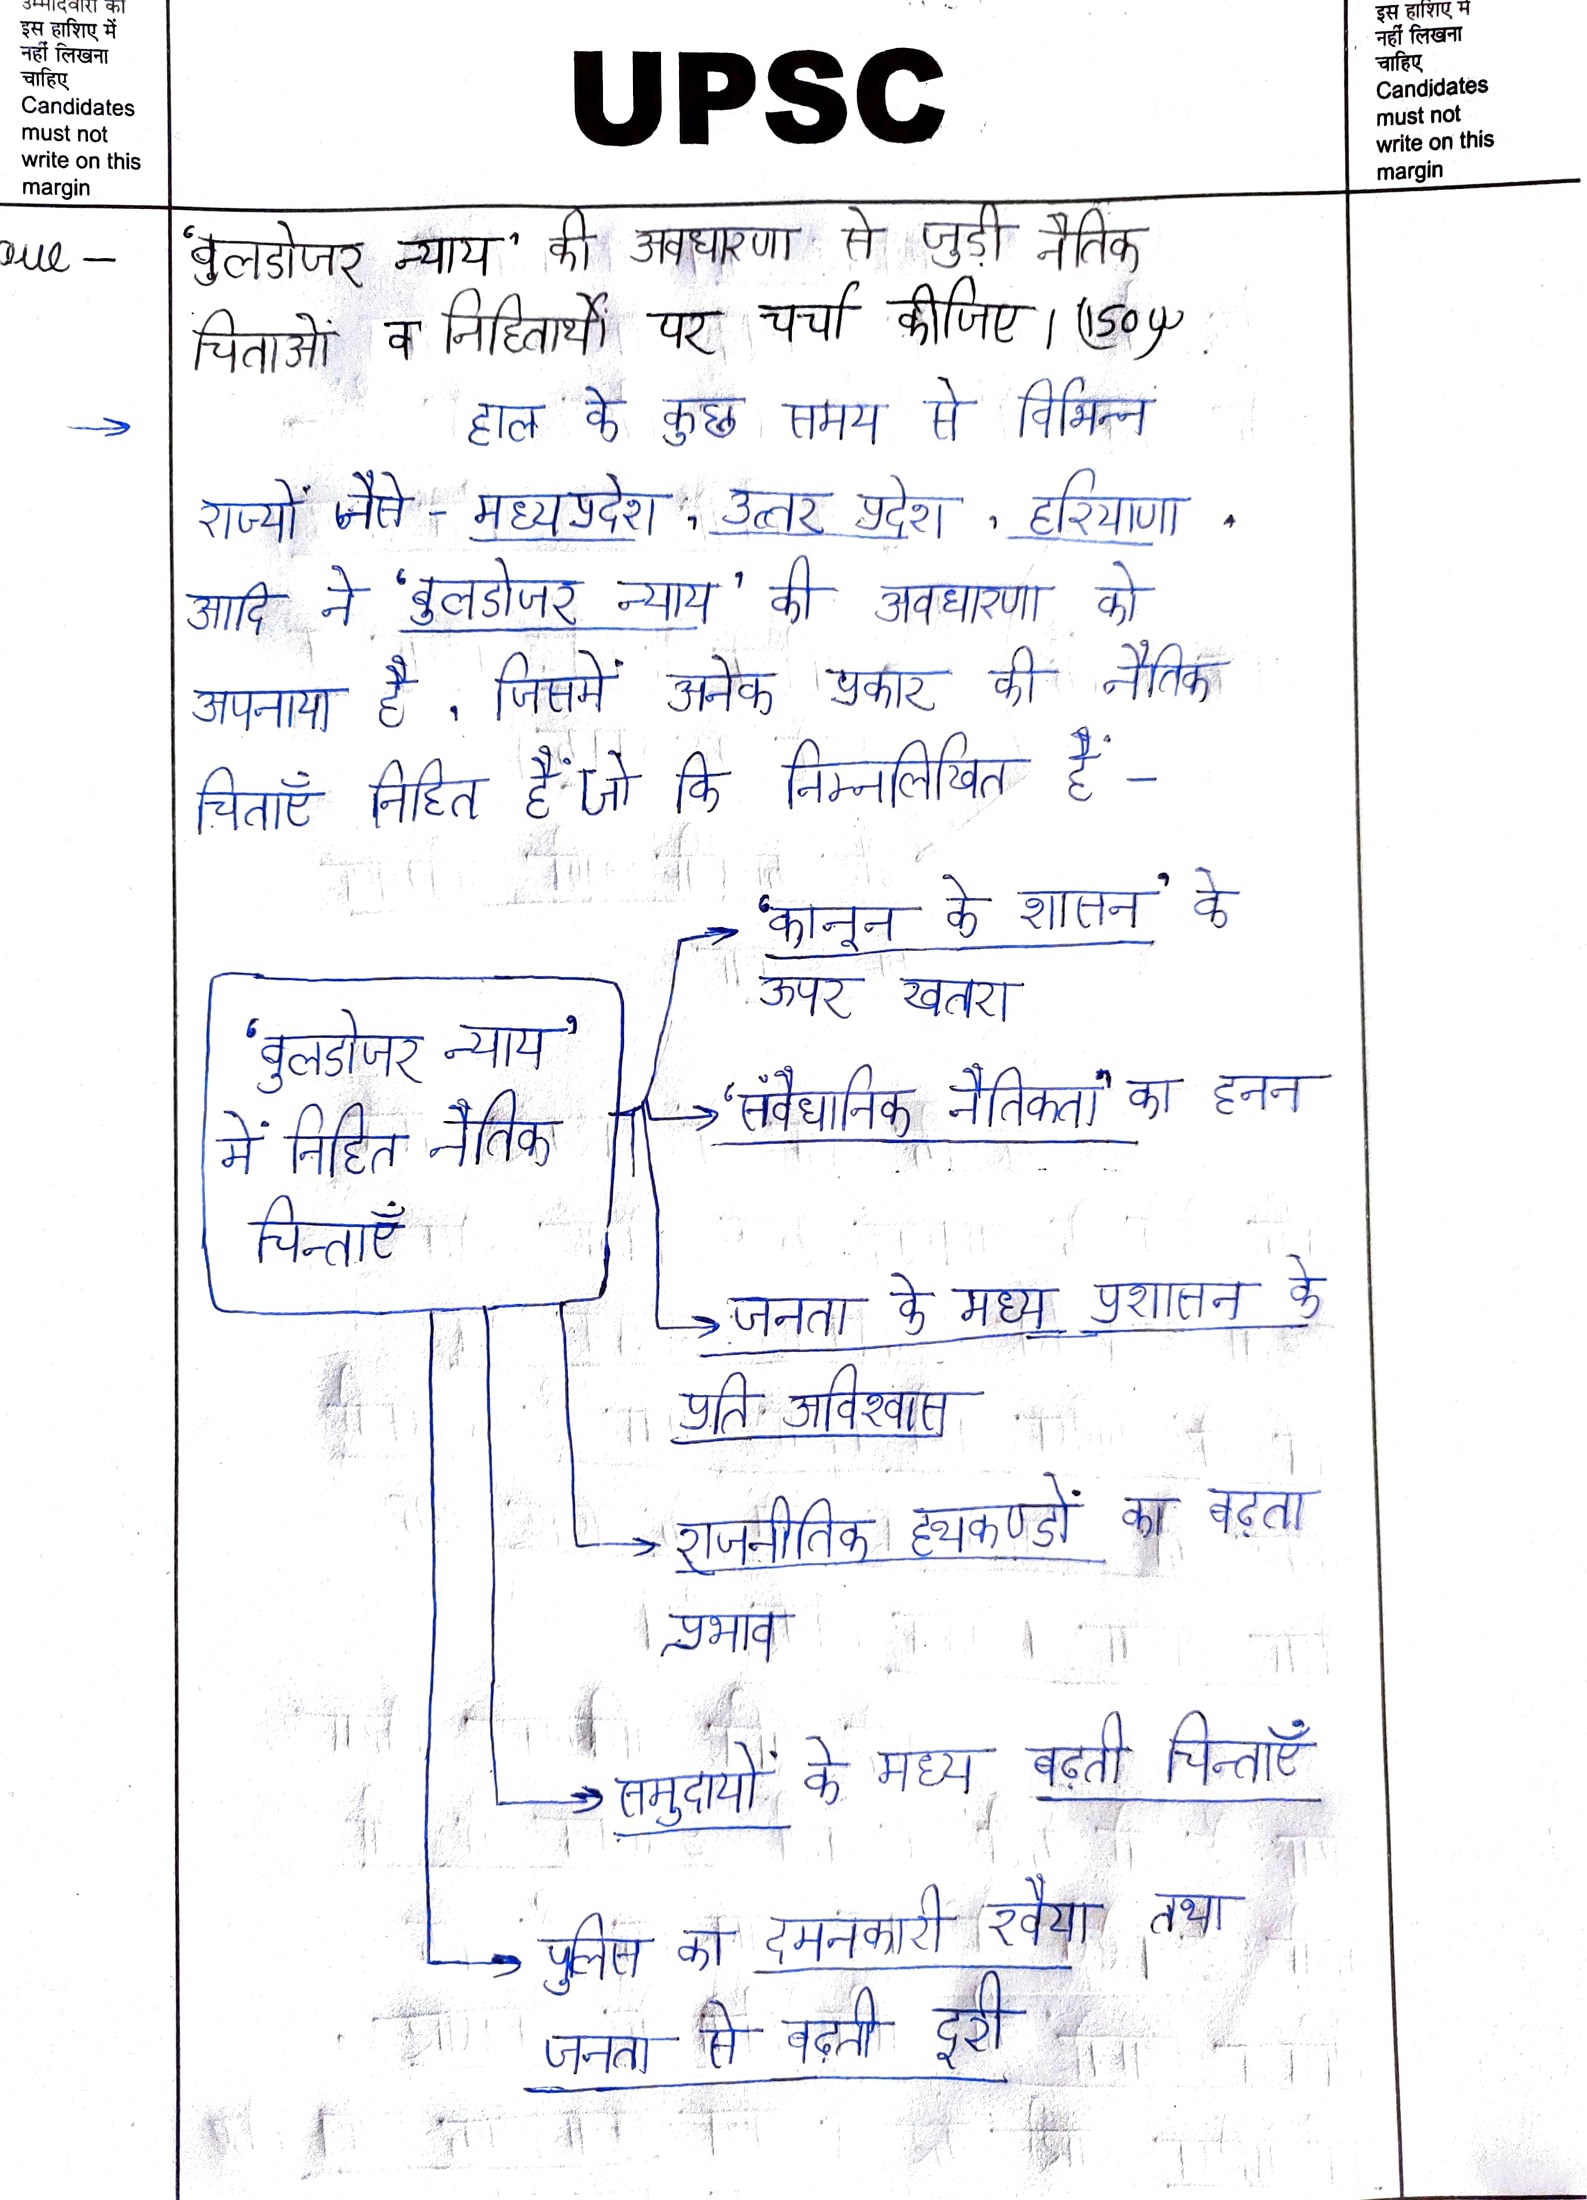 उम्मीदवारों को
इस हाशिए में
नहीं लिखना
चाहिए
Candidates
must not
write on this
margin
UPSC
इस हाशिए में
नहीं लिखना
चाहिए
Candidates
must not
write on this
margin
Que - 'बुलडोजर न्याय' की अवधारणा से जुड़ी नैतिक
चिंताओं व निहितार्थों पर चर्चा कीजिए। (150
→ हाल के कुछ समय से विभिन्न
राज्यों जैसे - मध्यप्रदेश, उत्तर प्रदेश, हरियाणा,
आदि ने 'बुलडोजर न्याय' की अवधारणा को
अपनाया है, जिसमें अनेक प्रकार की नैतिक
चिंताएँ निहित हैं जो कि निम्नलिखित हैं -
'बुलडोजर न्याय'
में निहित नैतिक
चिन्ताएँ
→ 'कानून के शासन' के
ऊपर खतरा
→ 'संवैधानिक नैतिकता' का हनन
→ जनता के मध्य प्रशासन के
प्रति अविश्वास
→ राजनीतिक हथकण्डों का बढ़ता
प्रभाव
→ समुदायों के मध्य बढ़ती चिन्ताएँ
→ पुलिस का दमनकारी रवैया तथा
जनता से बढ़ती दूरी